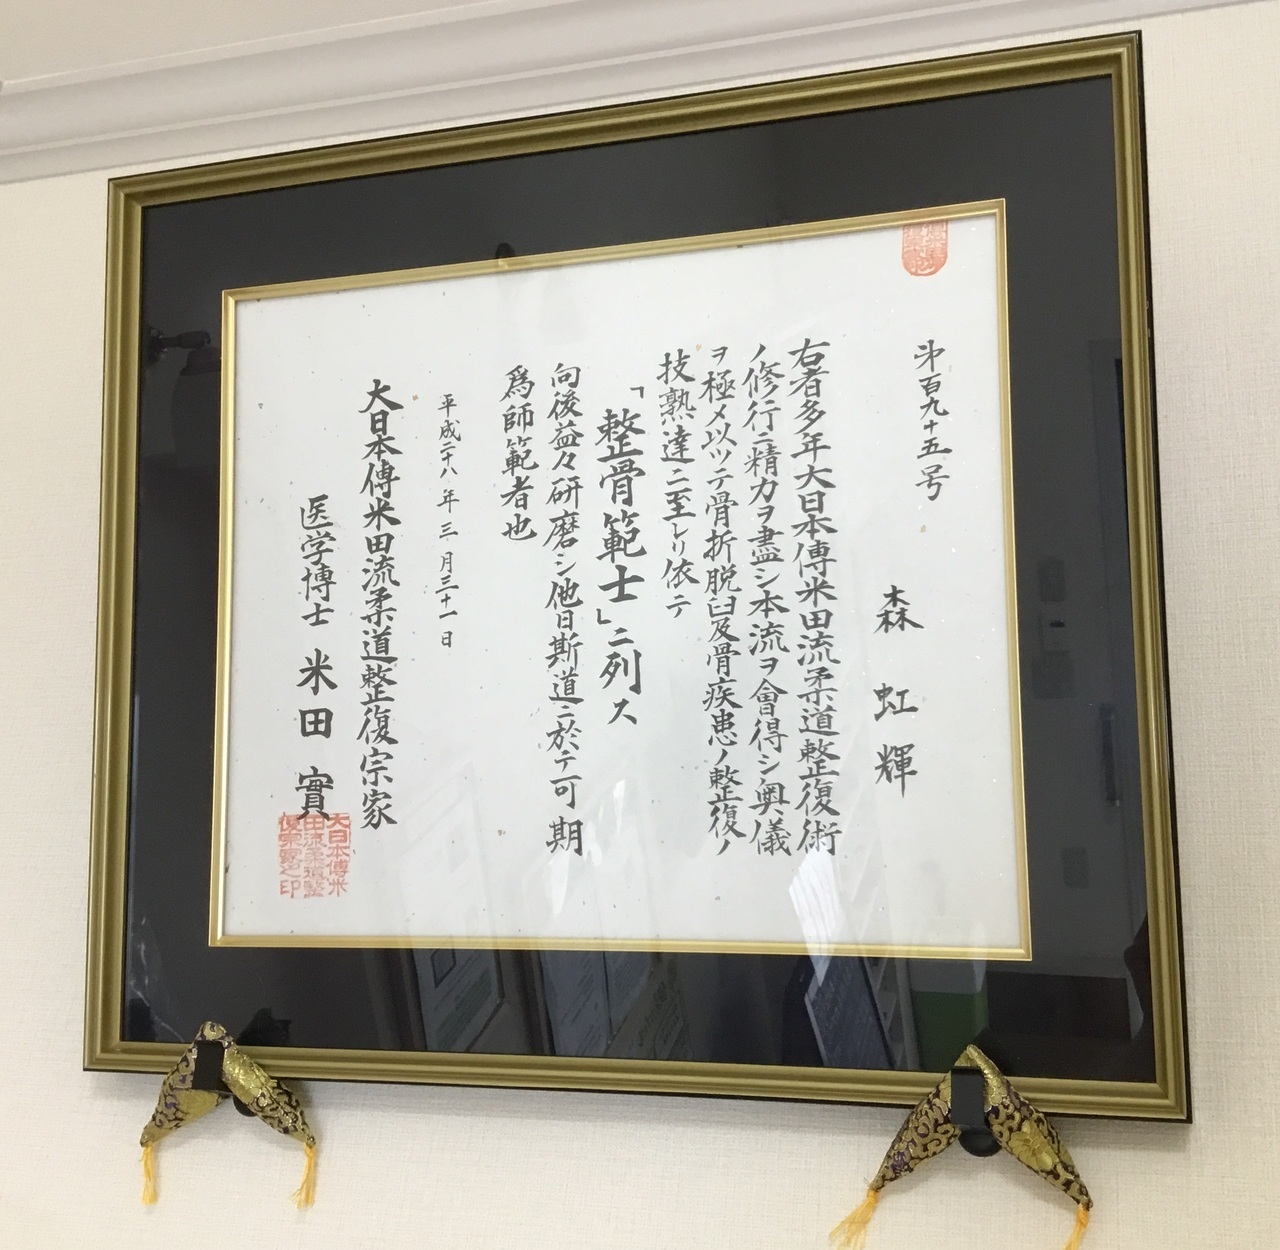 第百九十五号
森虹輝
右者多年大日本傳米田流柔道整復術
ノ修行ニ精力ヲ盡シ本流ヲ會得シ奥儀
ヲ極メ以ッテ骨折脱臼及骨疾患ノ整復ノ
技熟達ニ至レリ依テ
「整骨範士」ニ列ス
向後益々研磨シ他日斯道ニ於テ可期
爲師範者也
平成二十八年三月三十一日
大日本傳米田流柔道整復宗家
医学博士 米田實
大日本傳米
田流柔道整
復宗家之印